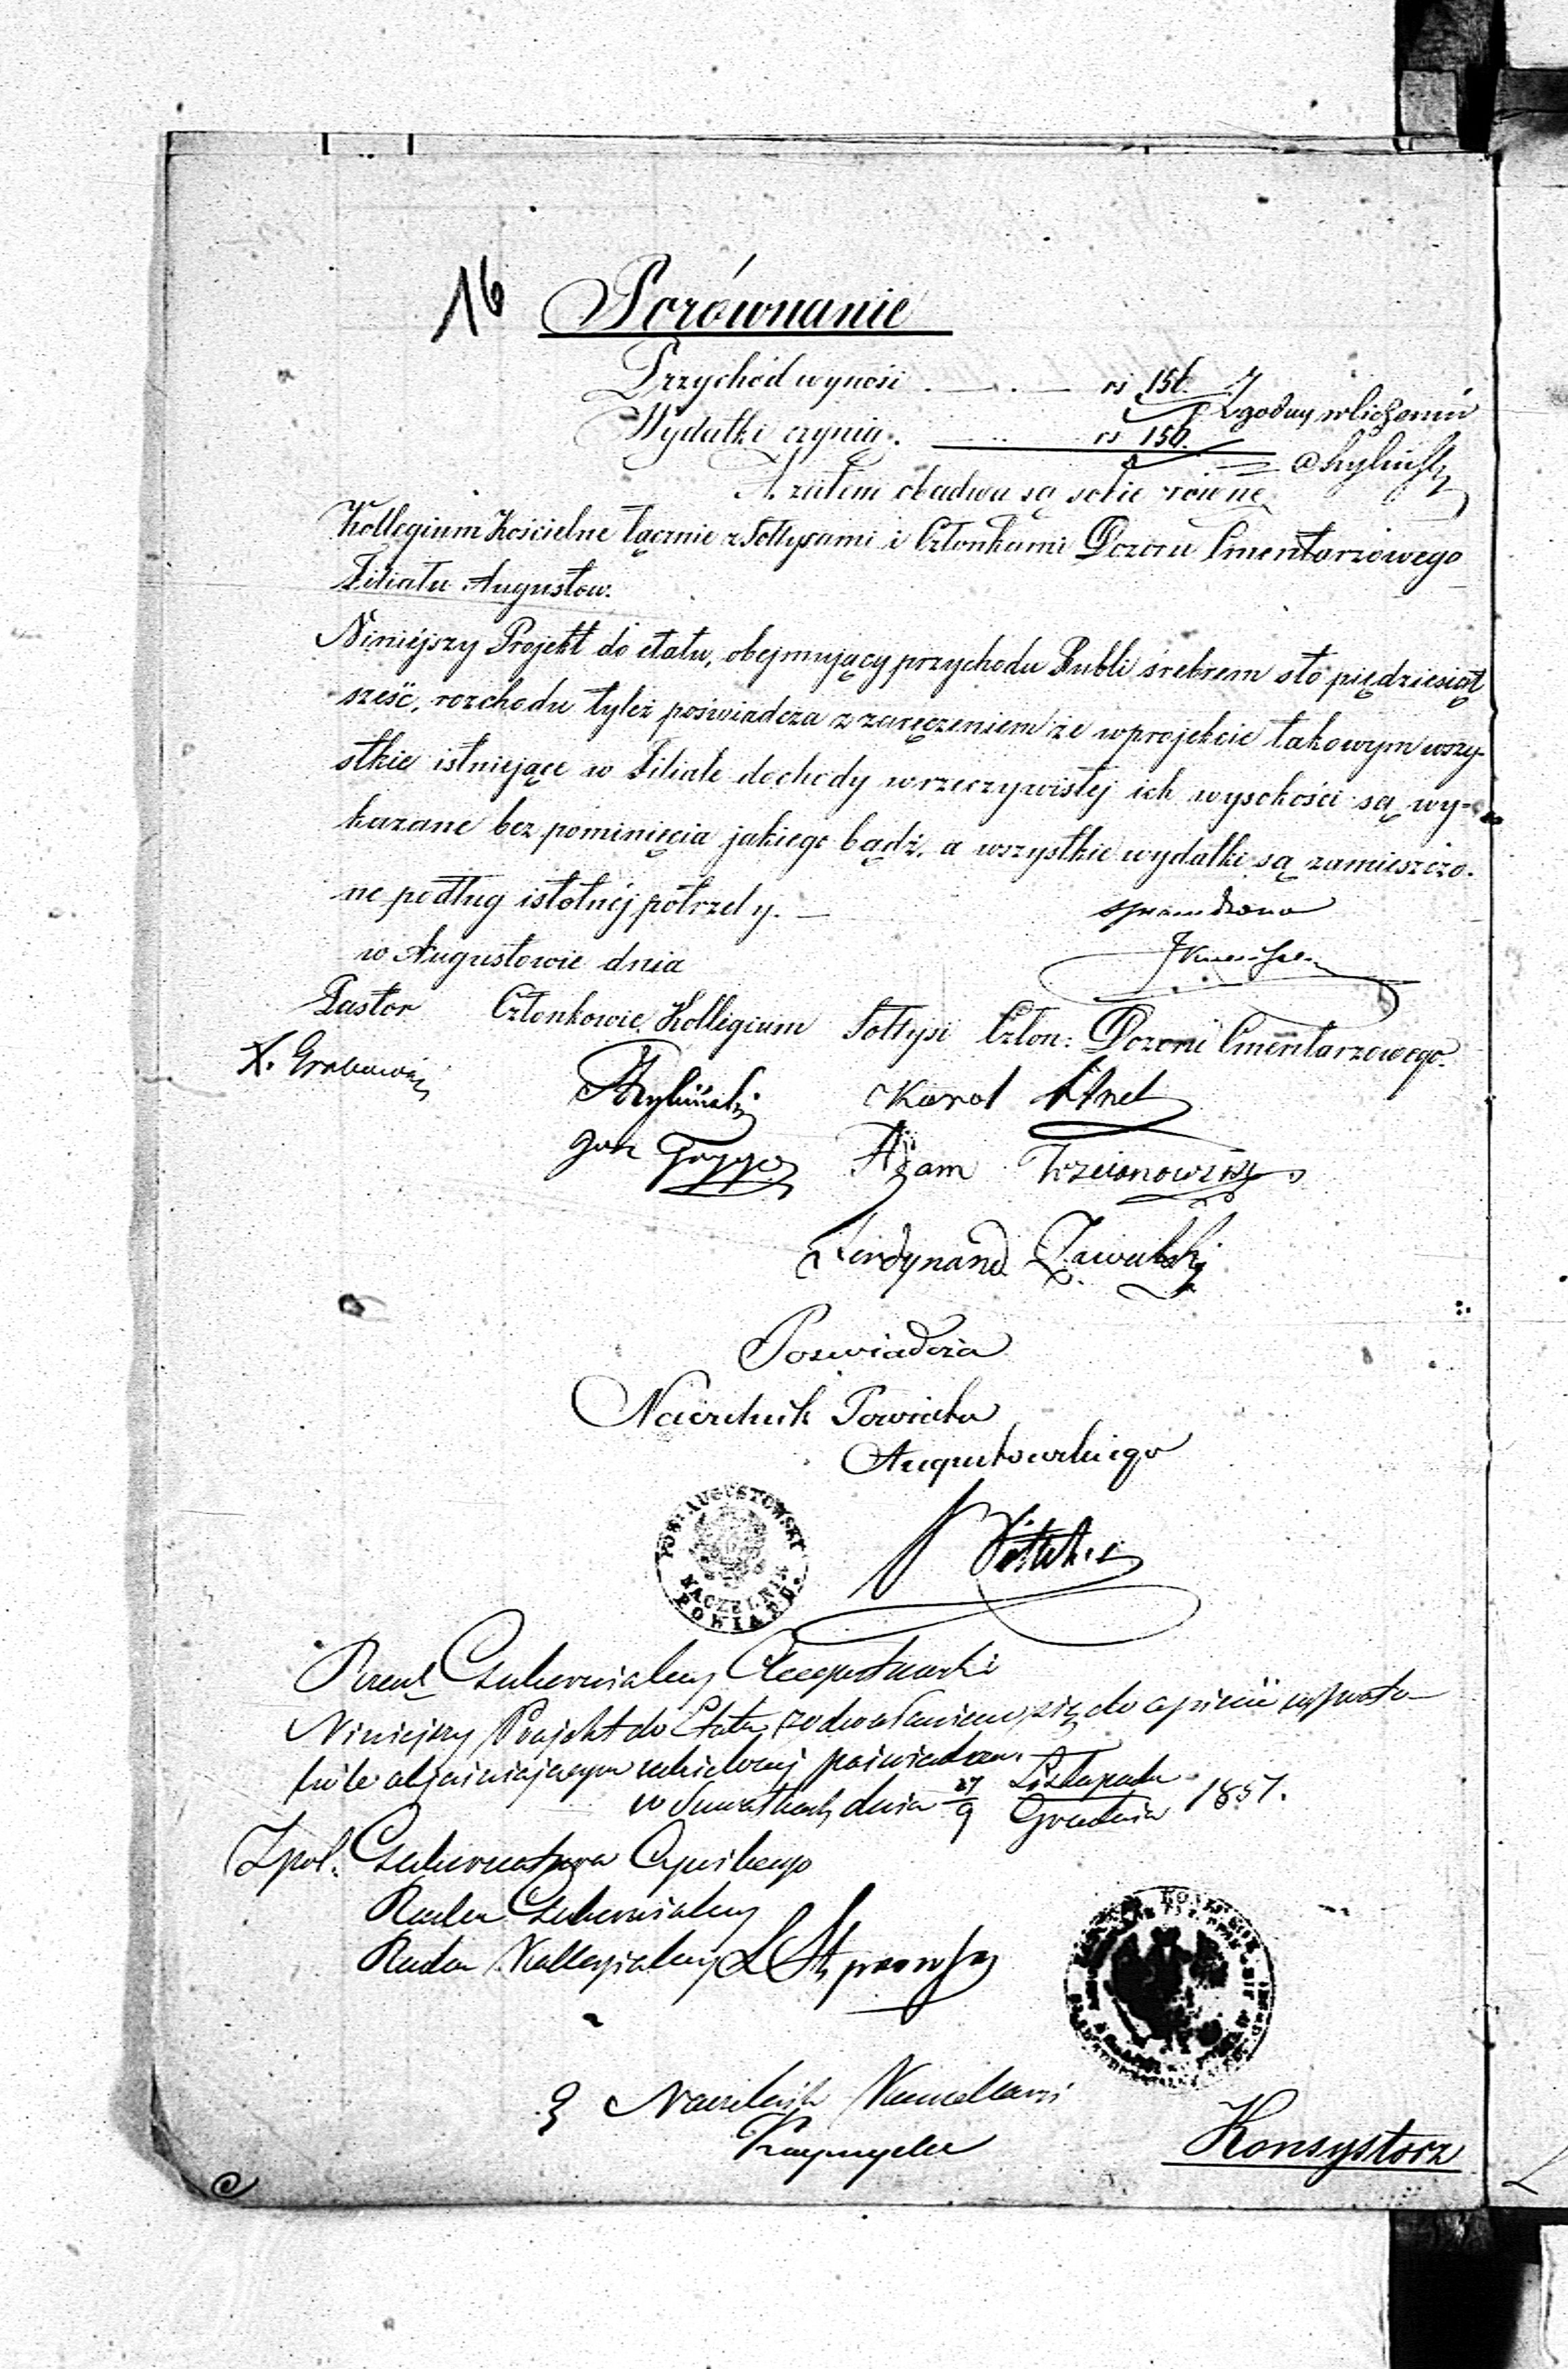 16 Porównanie
Przychód wynosi rs 156. Zgodny w liczeniu
Wydatki czynią. rs 156.
A zatem obadwa są sobie równe
Kollegium Kościelne łącznie z Sołtysami i Członkami Dozoru Cmentarzowego
Filiału Augustow.
Niniejszy Projekt do etatu, obejmujący przychodu Rubli srebrem sto pięćdziesiąt
sześć, rozchodu tyleż poświadcza z zaręczeniem że w projekcie takowym wszy-
stkie istniejące w Filiale dochody w rzeczywistej ich wysokości są wy-
kazane bez pominięcia jakiego bądź, a wszystkie wydatki są zamieszczo-
ne podług istotnéj potrzeby.
sprawdzono
w Augustowie dnia
Pastor Członkowie Kollegium Sołtysi Człon: Dozoru Cmentarzowego.
Karol
Jan Adam
Ferdynand Zawadzki
Poświadcza
Naczelnik Powiatu
Augustowskiego
POW: AUGUSTOWSKI
NACZELNIK
POWIATU
Rząd Gubernialny Augustowski
Niniejszy Projekt do Etatu z odwołaniem się do opinii w proto-
kule objaśniającym udzielonej poświadcza.
w Suwałkach dnia 27/9 Listopada/Grudnia 1857.
Z pol. Gubernatora Cywilnego
Radca Gubernialny
Radca Kollegialny
Naczelnik Kancellarii
Konsystorz